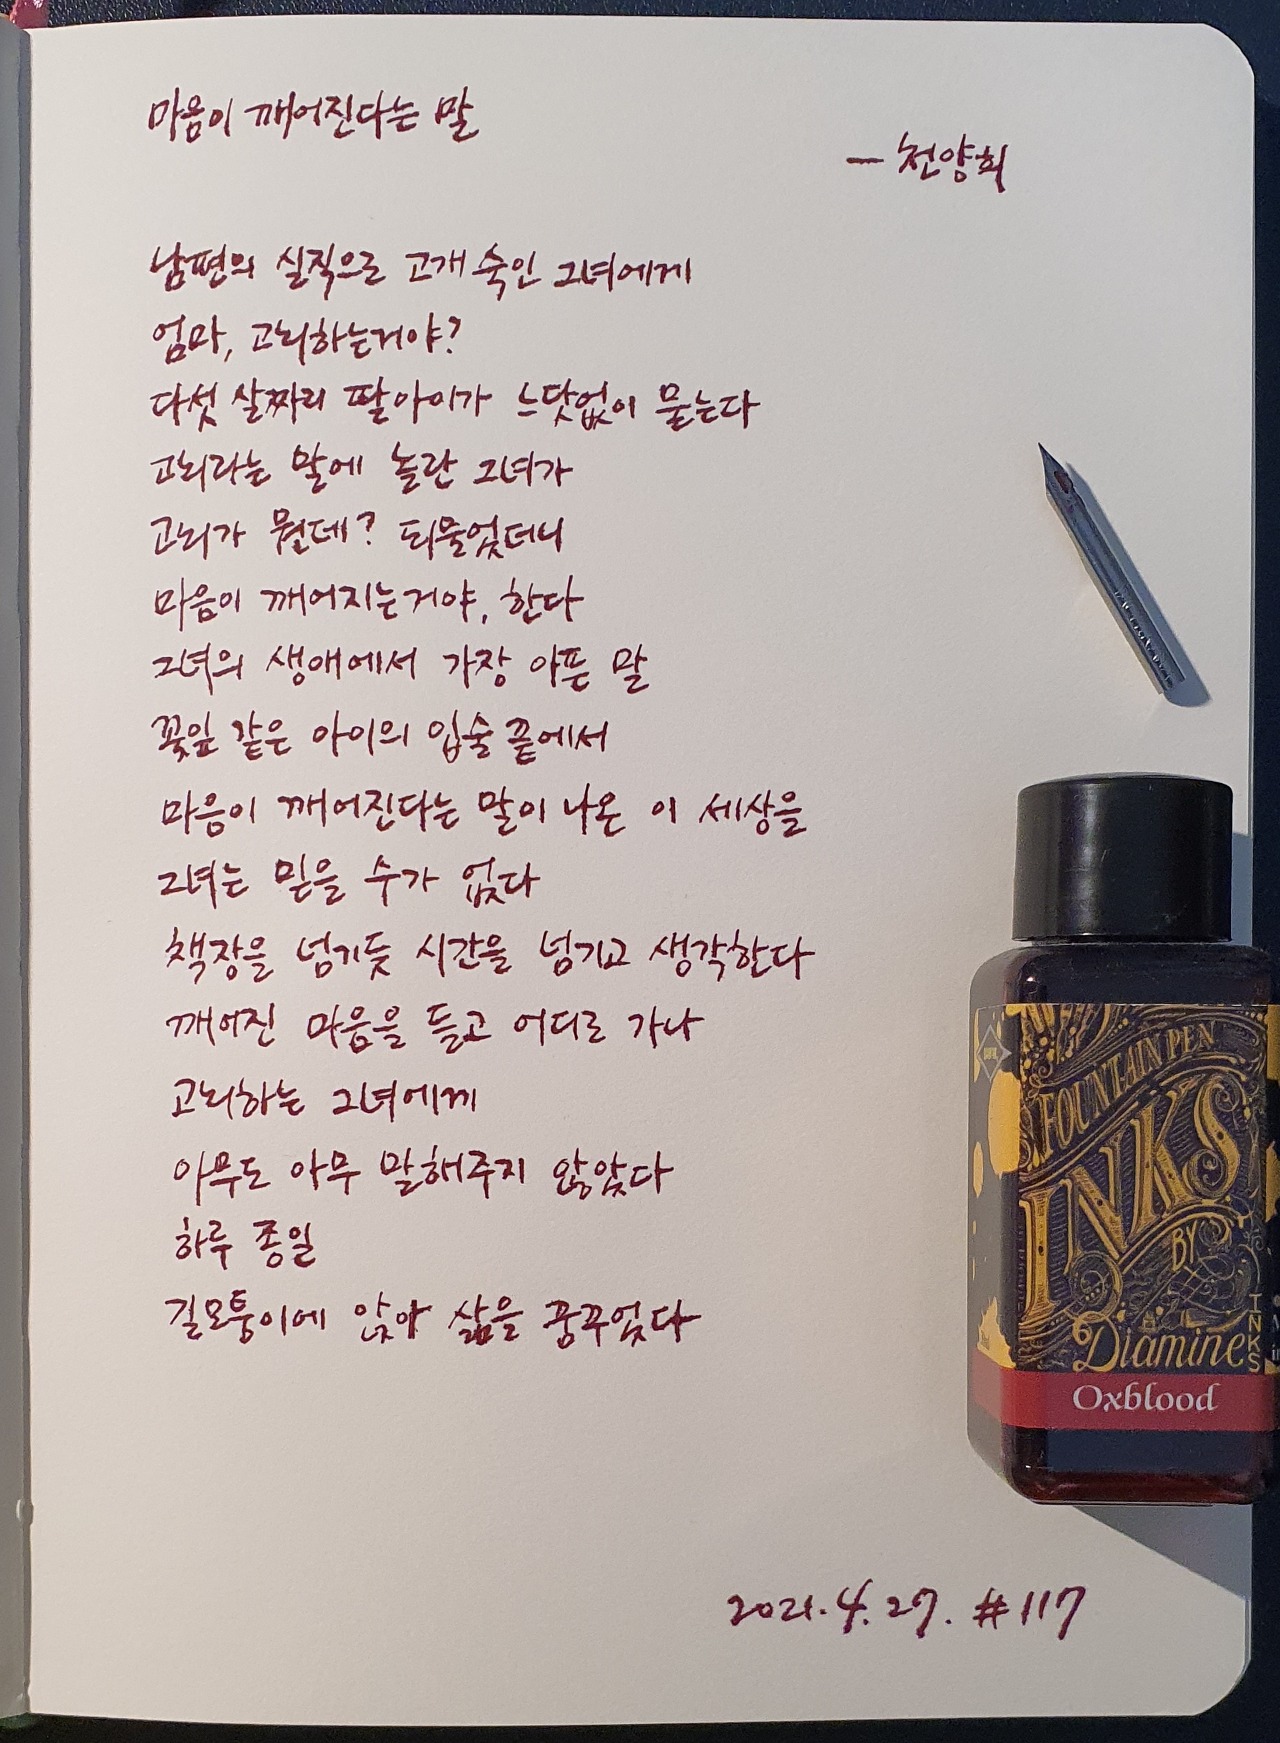 마음이 깨어진다는 말
— 천양희
남편의 실직으로 고개 숙인 그녀에게
엄마, 고뇌하는거야?
다섯 살짜리 딸아이가 느닷없이 묻는다
고뇌라는 말에 놀란 그녀가
고뇌가 뭔데? 되물었더니
마음이 깨어지는거야, 한다
그녀의 생애에서 가장 아픈 말
꽃잎 같은 아이의 입술 끝에서
마음이 깨어진다는 말이 나온 이 세상을
그녀는 믿을 수가 없다
책장을 넘기듯 시간을 넘기고 생각한다
깨어진 마음을 들고 어디로 가나
고뇌하는 그녀에게
아무도 아무 말해주지 않았다
하루 종일
길모퉁이에 앉아 삶을 꿈꾸었다
FOUNTAIN PEN
INKS
BY
Diamine
INKS
Oxblood
2021. 4. 27. #117